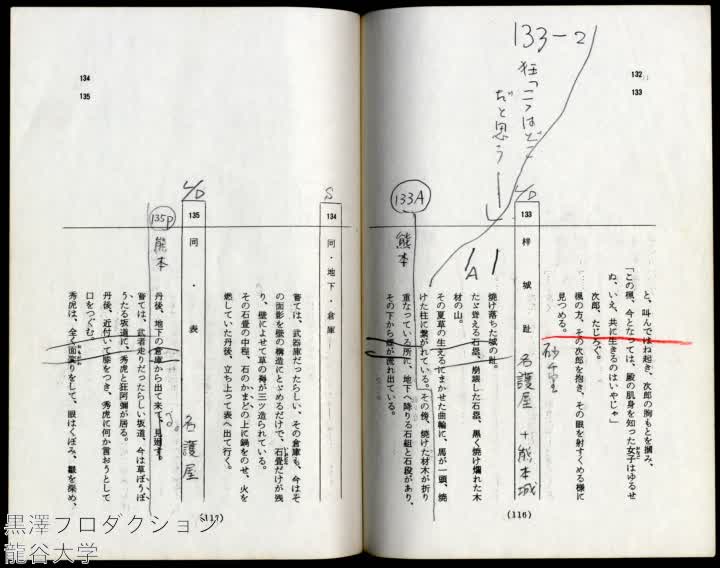 132
133
と、叫んではね起き、次郎の胸もとを摑み、
「この楓、今となっては、殿の肌身を知った女子はゆるせ
ぬ、いえ、共に生きるのはいやじゃ」
次郎、たじろぐ。
楓の方、その次郎を抱き、その眼を射すくめる様に
見つめる。
133-2
狂「こゝはどこ
だと思う
L/D
133 梓城趾 名護屋 + 熊本城
A
焼け落ちた城の趾。
たゞ聳える石塁、崩壊した石塁、黒く焼け爛れた木
材の山。
その夏草の生えるにまかせた曲輪に、馬が一頭、焼
けた柱に繫がれている。その後、焼けた材木が折り
重なっている所に、地下へ降りる石組と石段があり、
その下から煙が流れ出ている。
133A
熊本
(116)
134
135
S
134 同・地下・倉庫
嘗ては、武器庫だったらしい、その倉庫も、今はそ
の面影を壁の構造にとゞめるだけで、石畳だけが残
り、壁によせて草の褥が三ツ造られている。
その石畳の中程、石のかまどの上に鍋をのせ、火を
燃していた丹後、立ち上って表へ出て行く。
L/D
135 同・表 名護屋
135P
熊本
丹後、地下の倉庫から出て来て、見廻す。
嘗ては、武者走りだったらしい坂道、今は草ぼうぼ
うたる坂道に、秀虎と狂阿彌が居る。
丹後、近付いて膝をつき、秀虎に何か言おうとして
口をつぐむ。
秀虎は、全く面変りをして、眼はくぼみ、皺を深め、
(117)
黒澤プロダクション
龍谷大学